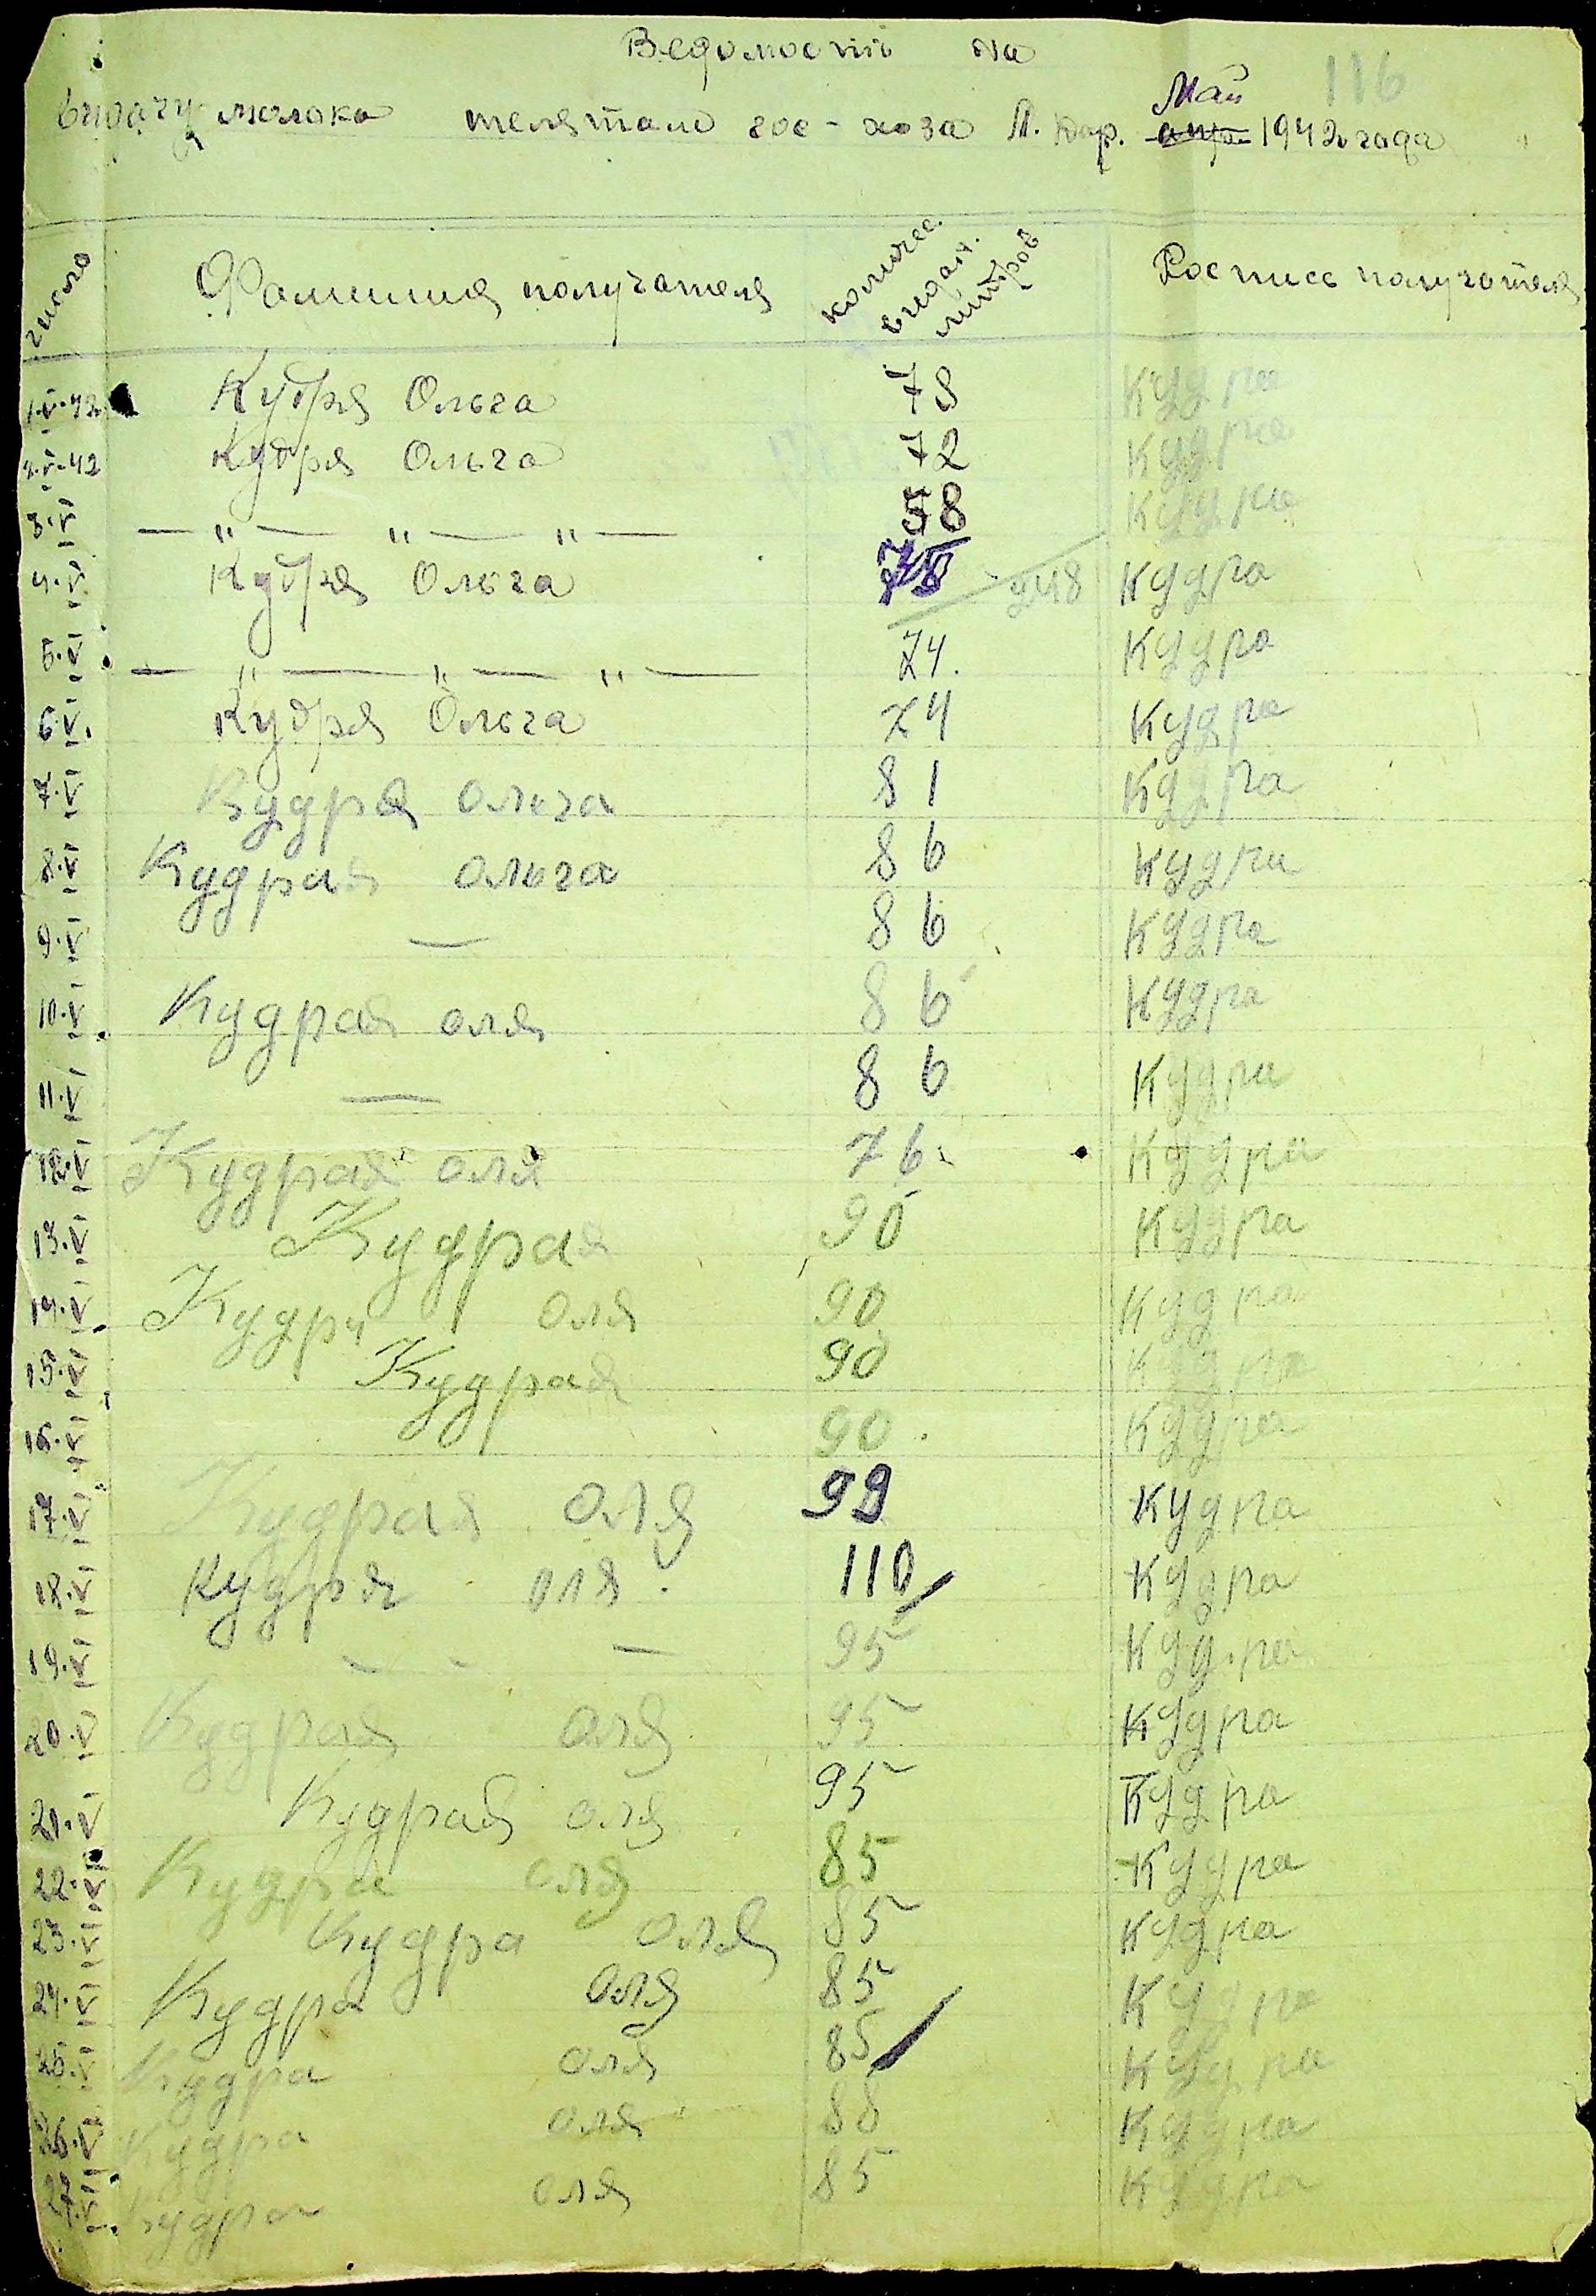 Ведомость на
116
выдачу молока телятам гос-хоза Май 1942 года
число Фамилия получателя количес. выдан. литров Роспись получателя
1.V.42 Кудря Ольга 78 Кудра
2.V.42 Кудря Ольга 72 Кудра
3.V — " — " — " — 58 Кудра
4.V Кудря Ольга 248 Кудра
5.V — " — " — " — 74. Кудра
6.V. Кудря Ольга 74 Кудра
7.V Кудря Ольга 81 Кудра
8.V Кудрая Ольга 86 Кудра
9.V — 86 Кудра
10.V Кудрая оля 86 Кудра
11.V — 86 Кудра
12.V Кудрая оля 76 Кудра
13.V Кудрая 90 Кудра
14.V Кудря оля 90 Кудра
15.V Кудрая 90 Кудра
16.V 90 Кудра
17.V Кудрая оля 99 Кудра
18.V Кудря оля 110 Кудра
19.V - - — 95 Кудра
20.V Кудрая оля 95 Кудра
21.V Кудрая оля 95 Кудра
22.V Кудра оля 85 Кудра
23.V Кудра оля 85 Кудра
24.V Кудра оля 85 Кудра
25.V Кудра оля 85 Кудра
26.V Кудра оля 88 Кудра
27.V Кудра оля 85 Кудра